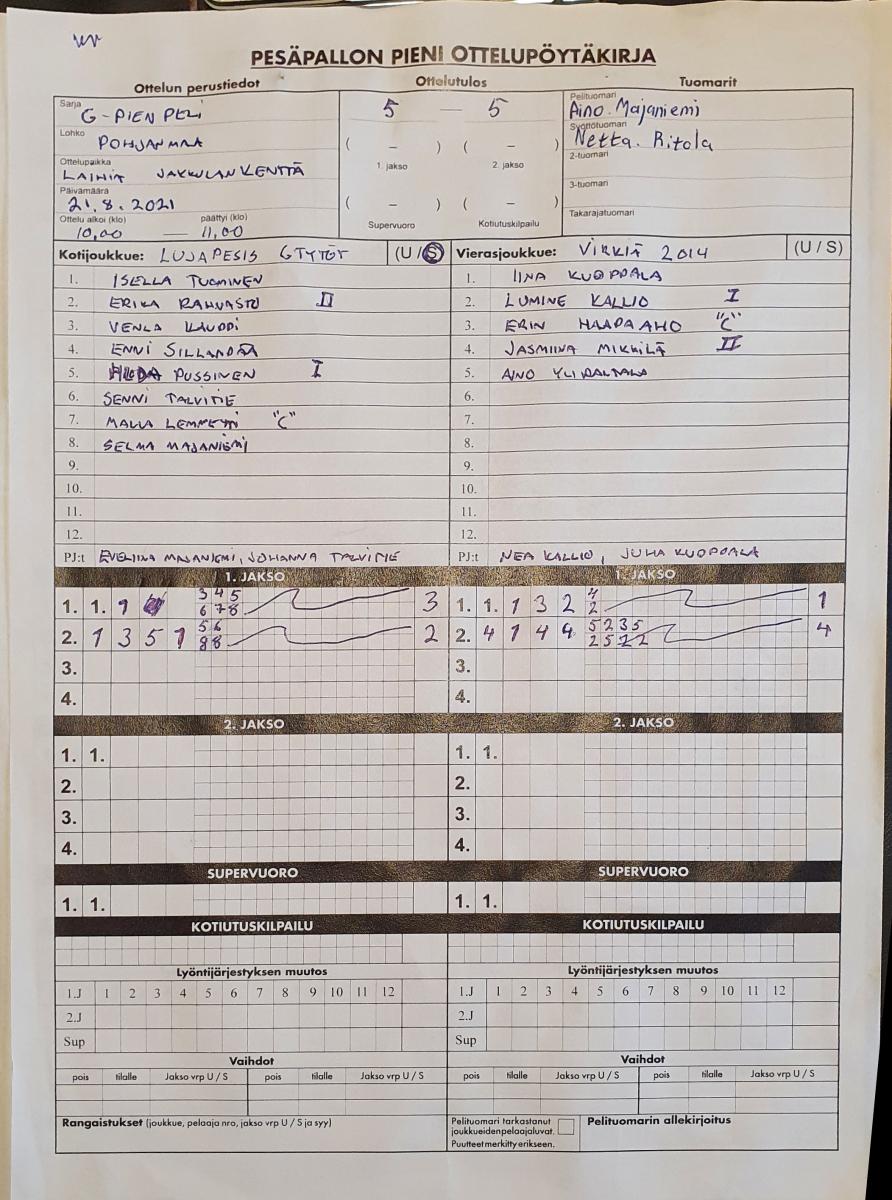 PESÄPALLON PIENI OTTELUPÖYTÄKIRJA
Ottelun perustiedot
Ottelutulos
Tuomarit
Sarja
G-PIENPELI
Lohko
POHJANMAA
Ottelupaikka
LAIHIA JAKKULANKENTTÄ
Päivämäärä
21.8.2021
Ottelu alkoi (klo) päättyi (klo)
10,00 — 11,00
5 — 5
( – ) ( – )
1. jakso 2. jakso
( – ) ( – )
Supervuoro Kotiutuskilpailu
Pelituomari
Aino. Majaniemi
Syöttötuomari
Netta. Ritola
2-tuomari
3-tuomari
Takarajatuomari
Kotijoukkue: LUJAPESIS GTYTÖT (U / S)
1. ISELLA TUOMINEN
2. ERIKA RAHNASTO II
3. VENLA KAUPPI
4. ENNI SILLANPÄÄ
5. PUSSINEN I
6. SENNI TALVITIE
7. MALLA "C"
8. SELMA MAJANIEMI
9.
10.
11.
12.
PJ:t EVELIINA MAJANIEMI, JOHANNA TALVITIE
Vierasjoukkue: VIRKIÄ 2014 (U / S)
1. IINA KUOPPALA
2. LUMINE KALLIO I
3. ERIN HAAPAAHO "C"
4. JASMIINA MIKKILÄ II
5. AINO YLIPALTALA
6.
7.
8.
9.
10.
11.
12.
PJ:t NEA KALLIO, JUHA KUOPPALA
1. JAKSO
1. 1. 1 3 4 5 3
6 7 8
2. 1 3 5 1 5 6 2
8 8
3.
4.
1. JAKSO
1. 1. 1 3 2 4 1
2
2. 4 1 4 4 5 2 3 5 4
2 5 2 2
3.
4.
2. JAKSO
1. 1.
2.
3.
4.
2. JAKSO
1. 1.
2.
3.
4.
SUPERVUORO
1. 1.
SUPERVUORO
1. 1.
KOTIUTUSKILPAILU
KOTIUTUSKILPAILU
Lyöntijärjestyksen muutos
1.J 1 2 3 4 5 6 7 8 9 10 11 12
2.J
Sup
Lyöntijärjestyksen muutos
1.J 1 2 3 4 5 6 7 8 9 10 11 12
2.J
Sup
Vaihdot
pois tilalle Jakso vrp U / S pois tilalle Jakso vrp U / S
Vaihdot
pois tilalle Jakso vrp U / S pois tilalle Jakso vrp U / S
Rangaistukset (joukkue, pelaaja nro, jakso vrp U / S ja syy)
Pelituomari tarkastanut
joukkueiden pelaajaluvat.
Puutteet merkitty erikseen.
Pelituomarin allekirjoitus